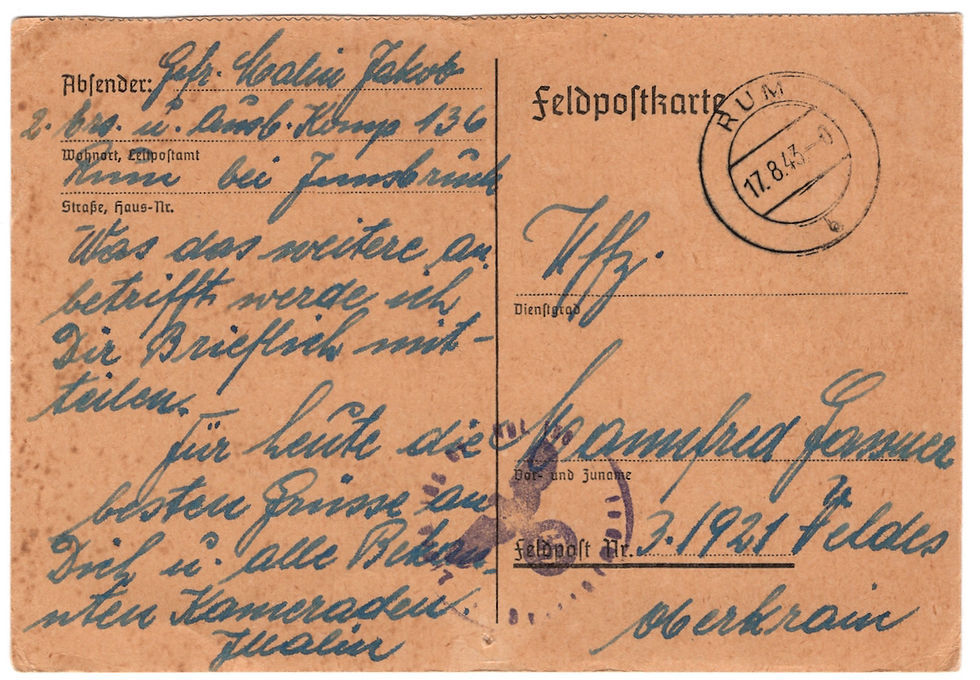 Absender: Gefr. Malin Jakob
2. Ers. u. Ausb. Komp 136
Wohnort, Leitpostamt
Rum bei Innsbruck
Straße, Haus-Nr.
Was das weitere an
betrifft werde ich
Dir Brieflich mit-
teilen. —
Für heute die
besten Grüsse an
Dich u. alle Bekan-
nten Kameraden.
JMalin
Feldpostkarte
RUM
17.8.43.-0
b
Uffz.
Dienstgrad
Mannfred
Vor- und Zuname
Feldpost Nr. 3.1921 Veldes
Oberkrain